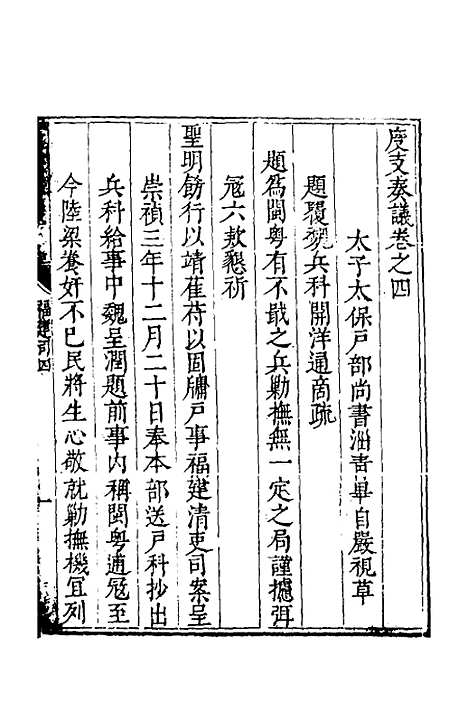 度支奏議卷之四
太子太保戶部尚書淄青畢自嚴視草
題覆魏兵科開洋通商疏
題爲閩粤有不戢之兵勦撫無一定之局謹攄弭
寇六款懇祈
聖明飭行以靖萑苻以固牖戸事福建清吏司案呈
崇禎三年十二月二十日奉本部送戸科抄出
兵科給事中魏呈潤題前事内稱閩粤逋寇至
今陸梁養奸不巳民將生心敬就勦撫機宜列
福建司四